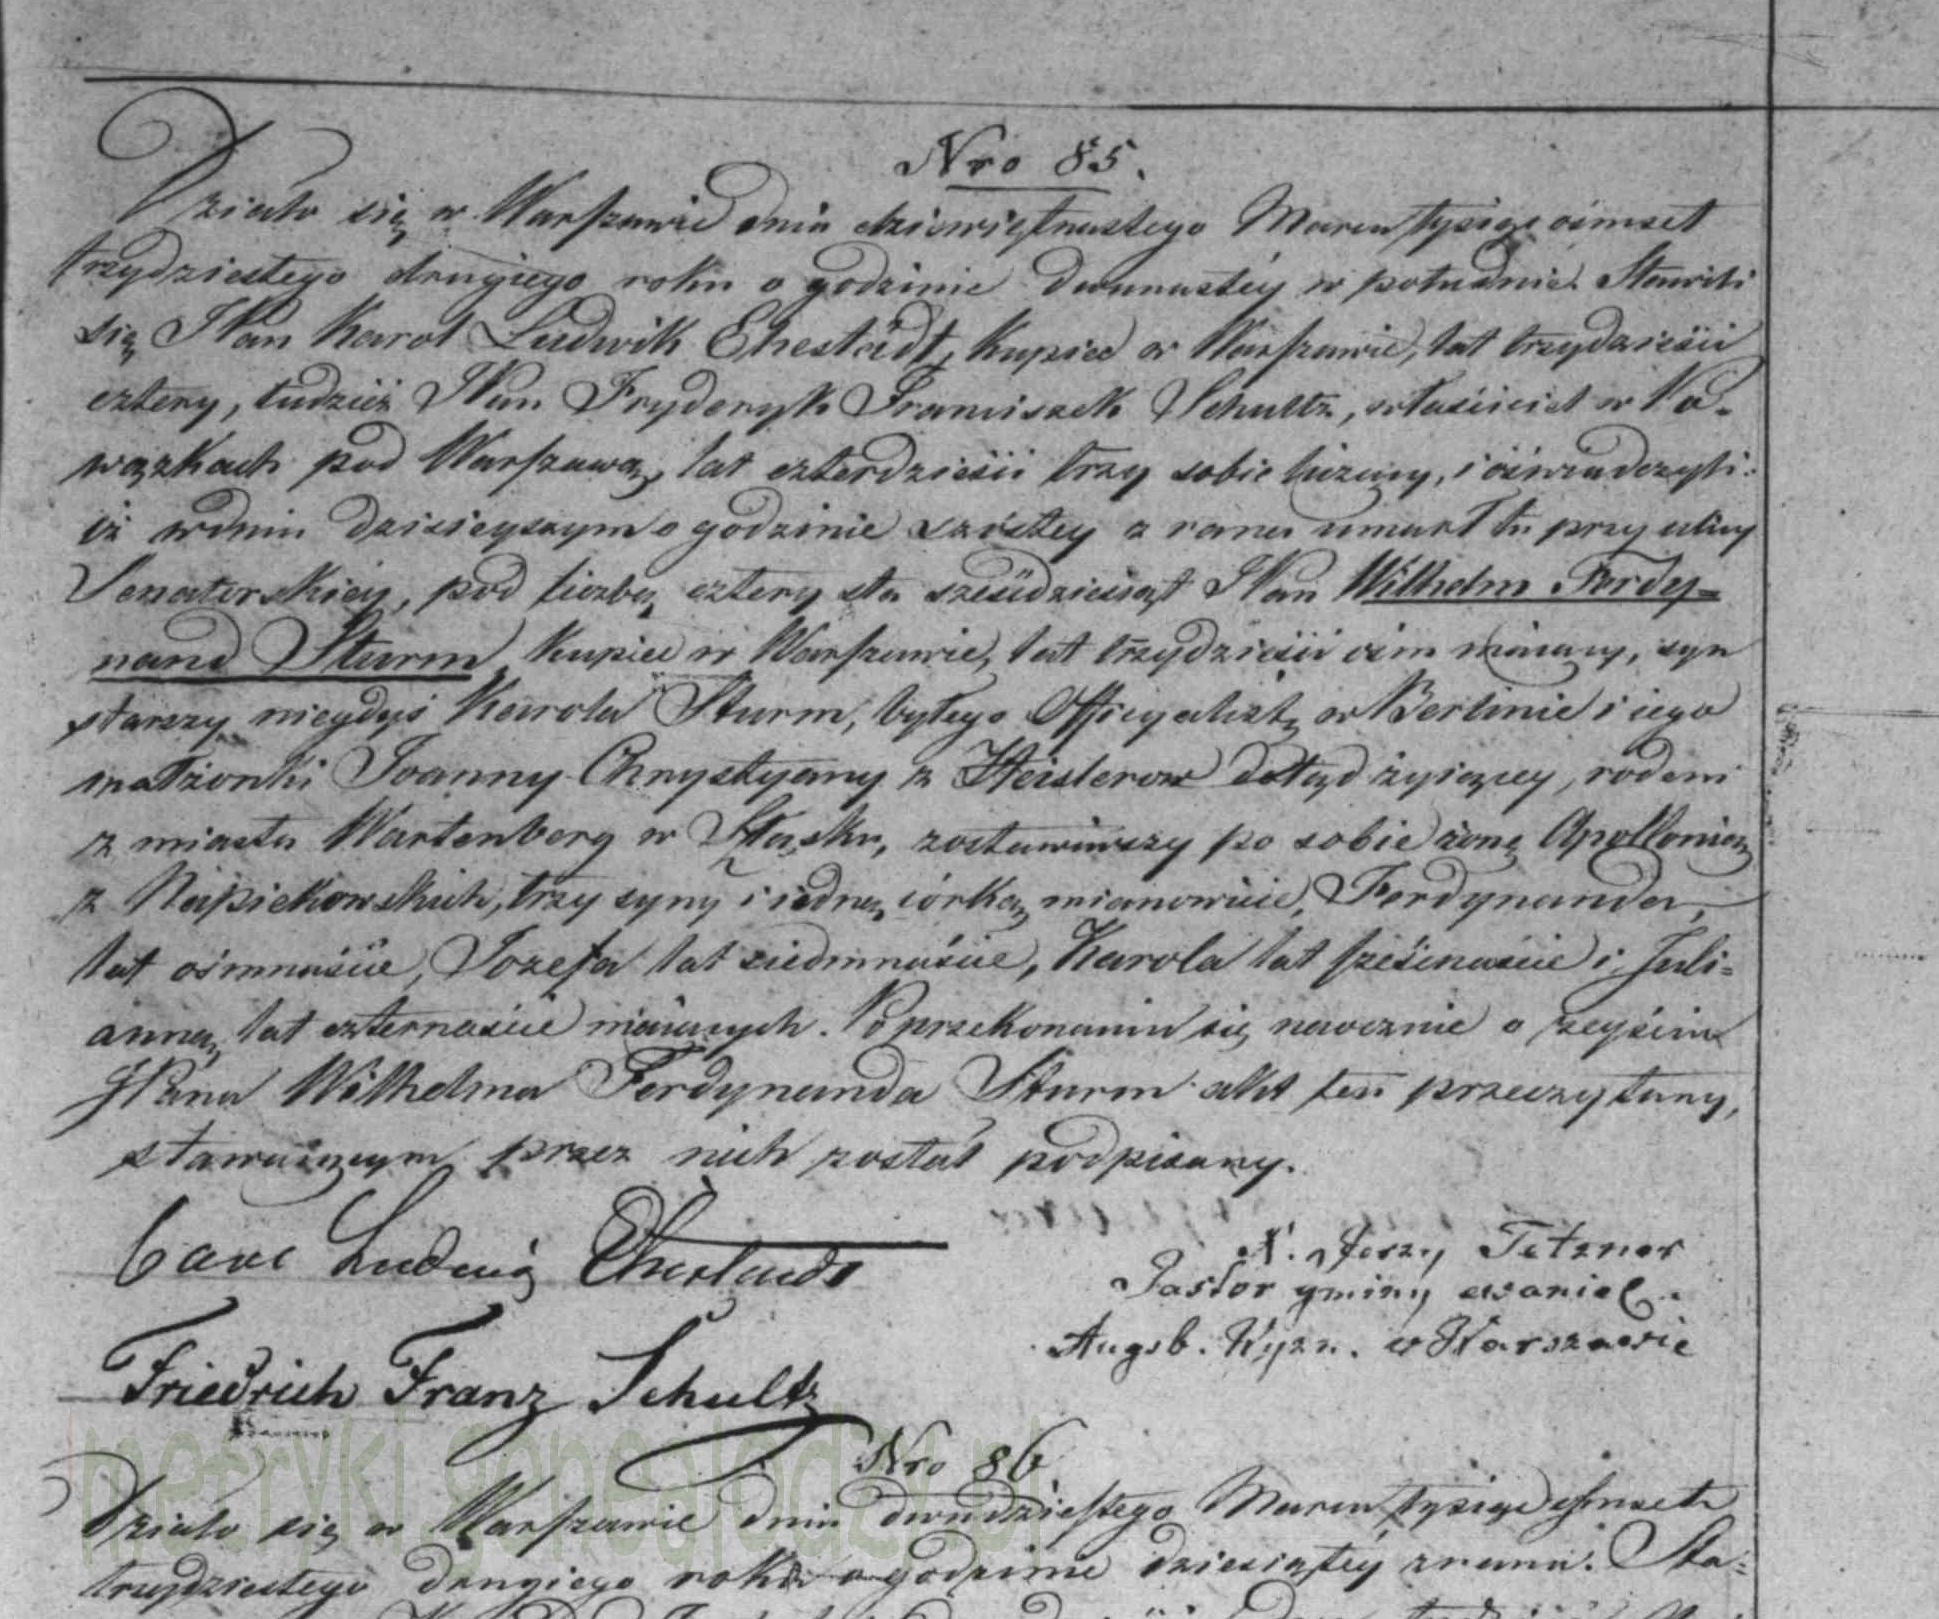 Nro 85.
Działo się w Warszawie dnia dziewiętnastego Marca tysiąc ośmset
trzydziestego drugiego roku o godzinie dwunastéy w południe. Stawili
się JPan Karol Ludwik Ehestädt, kupiec w Warszawie, lat trzydzieści
cztery, tudzież JPan Fryderyk Franciszek Schultz, właściciel w Po-
wązkach pod Warszawą, lat czterdzieści trzy sobie liczący, i oświadczyli:
iż w dniu dzisieyszym o godzinie szóstey z rana umarł tu przy ulicy
Senatorskiey, pod liczbą cztery sta sześćdziesiąt JPan Wilhelm Ferdy-
nand Sturm, kupiec w Warszawie, lat trzydzieści ośm maiący, syn
starszy niegdyś Karola Sturm, byłego Officyalistę w Berlinie i iego
małżonki Joanny Chrystyany z Heislerow dotąd żyiącey, rodem
z miasta Wartenberg w Sląsku, zostawiwszy po sobie żonę Apollonią
z Napiekowskich, trzy syny i iedną córkę, mianowicie, Ferdynanda,
lat ośmnaście, Jozefa lat siedmnaście, Karola lat sześcnaście i Juli-
annę, lat czternaście maiących. Po przekonaniu się naocznie o zeyściu
JPana Wilhelma Ferdynanda Sturm akt ten przeczytany,
stawaiącym przez nich został podpisany.
Carl Ludwig Ehestaedt
X. Jerzy Tetzner
Pastor gminy ewaniel.
Augsb. Wyzn. w Warszawie
Friedrich Franz Schultz
Nro 86
metryki.genealodzy.pl
Działo się w Warszawie dnia dwudziestego Marca tysiąc ośmset
trzydziestego drugiego roku o godzinie dziesiątéy z rana. Sta-